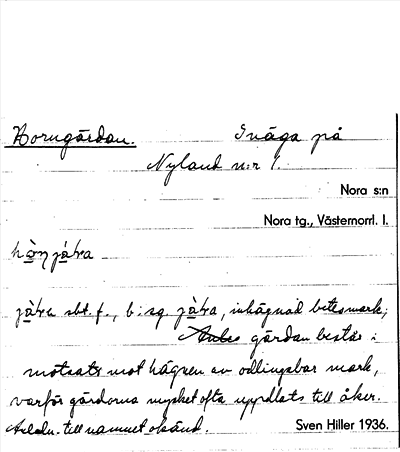 Horngärdan. Inäga på
Nyland n:r 1.
Nora s:n
Nora tg., Västernorrl. l.
jàtra sbt. f., b. sg. jàtra, inhägnad betesmark;
gärdan består i
motsats mot hägnen av odlingsbar mark,
varför gärdorna mycket ofta uppdlats till åker.
Anledn. till namnet okänd. Sven Hiller 1936.